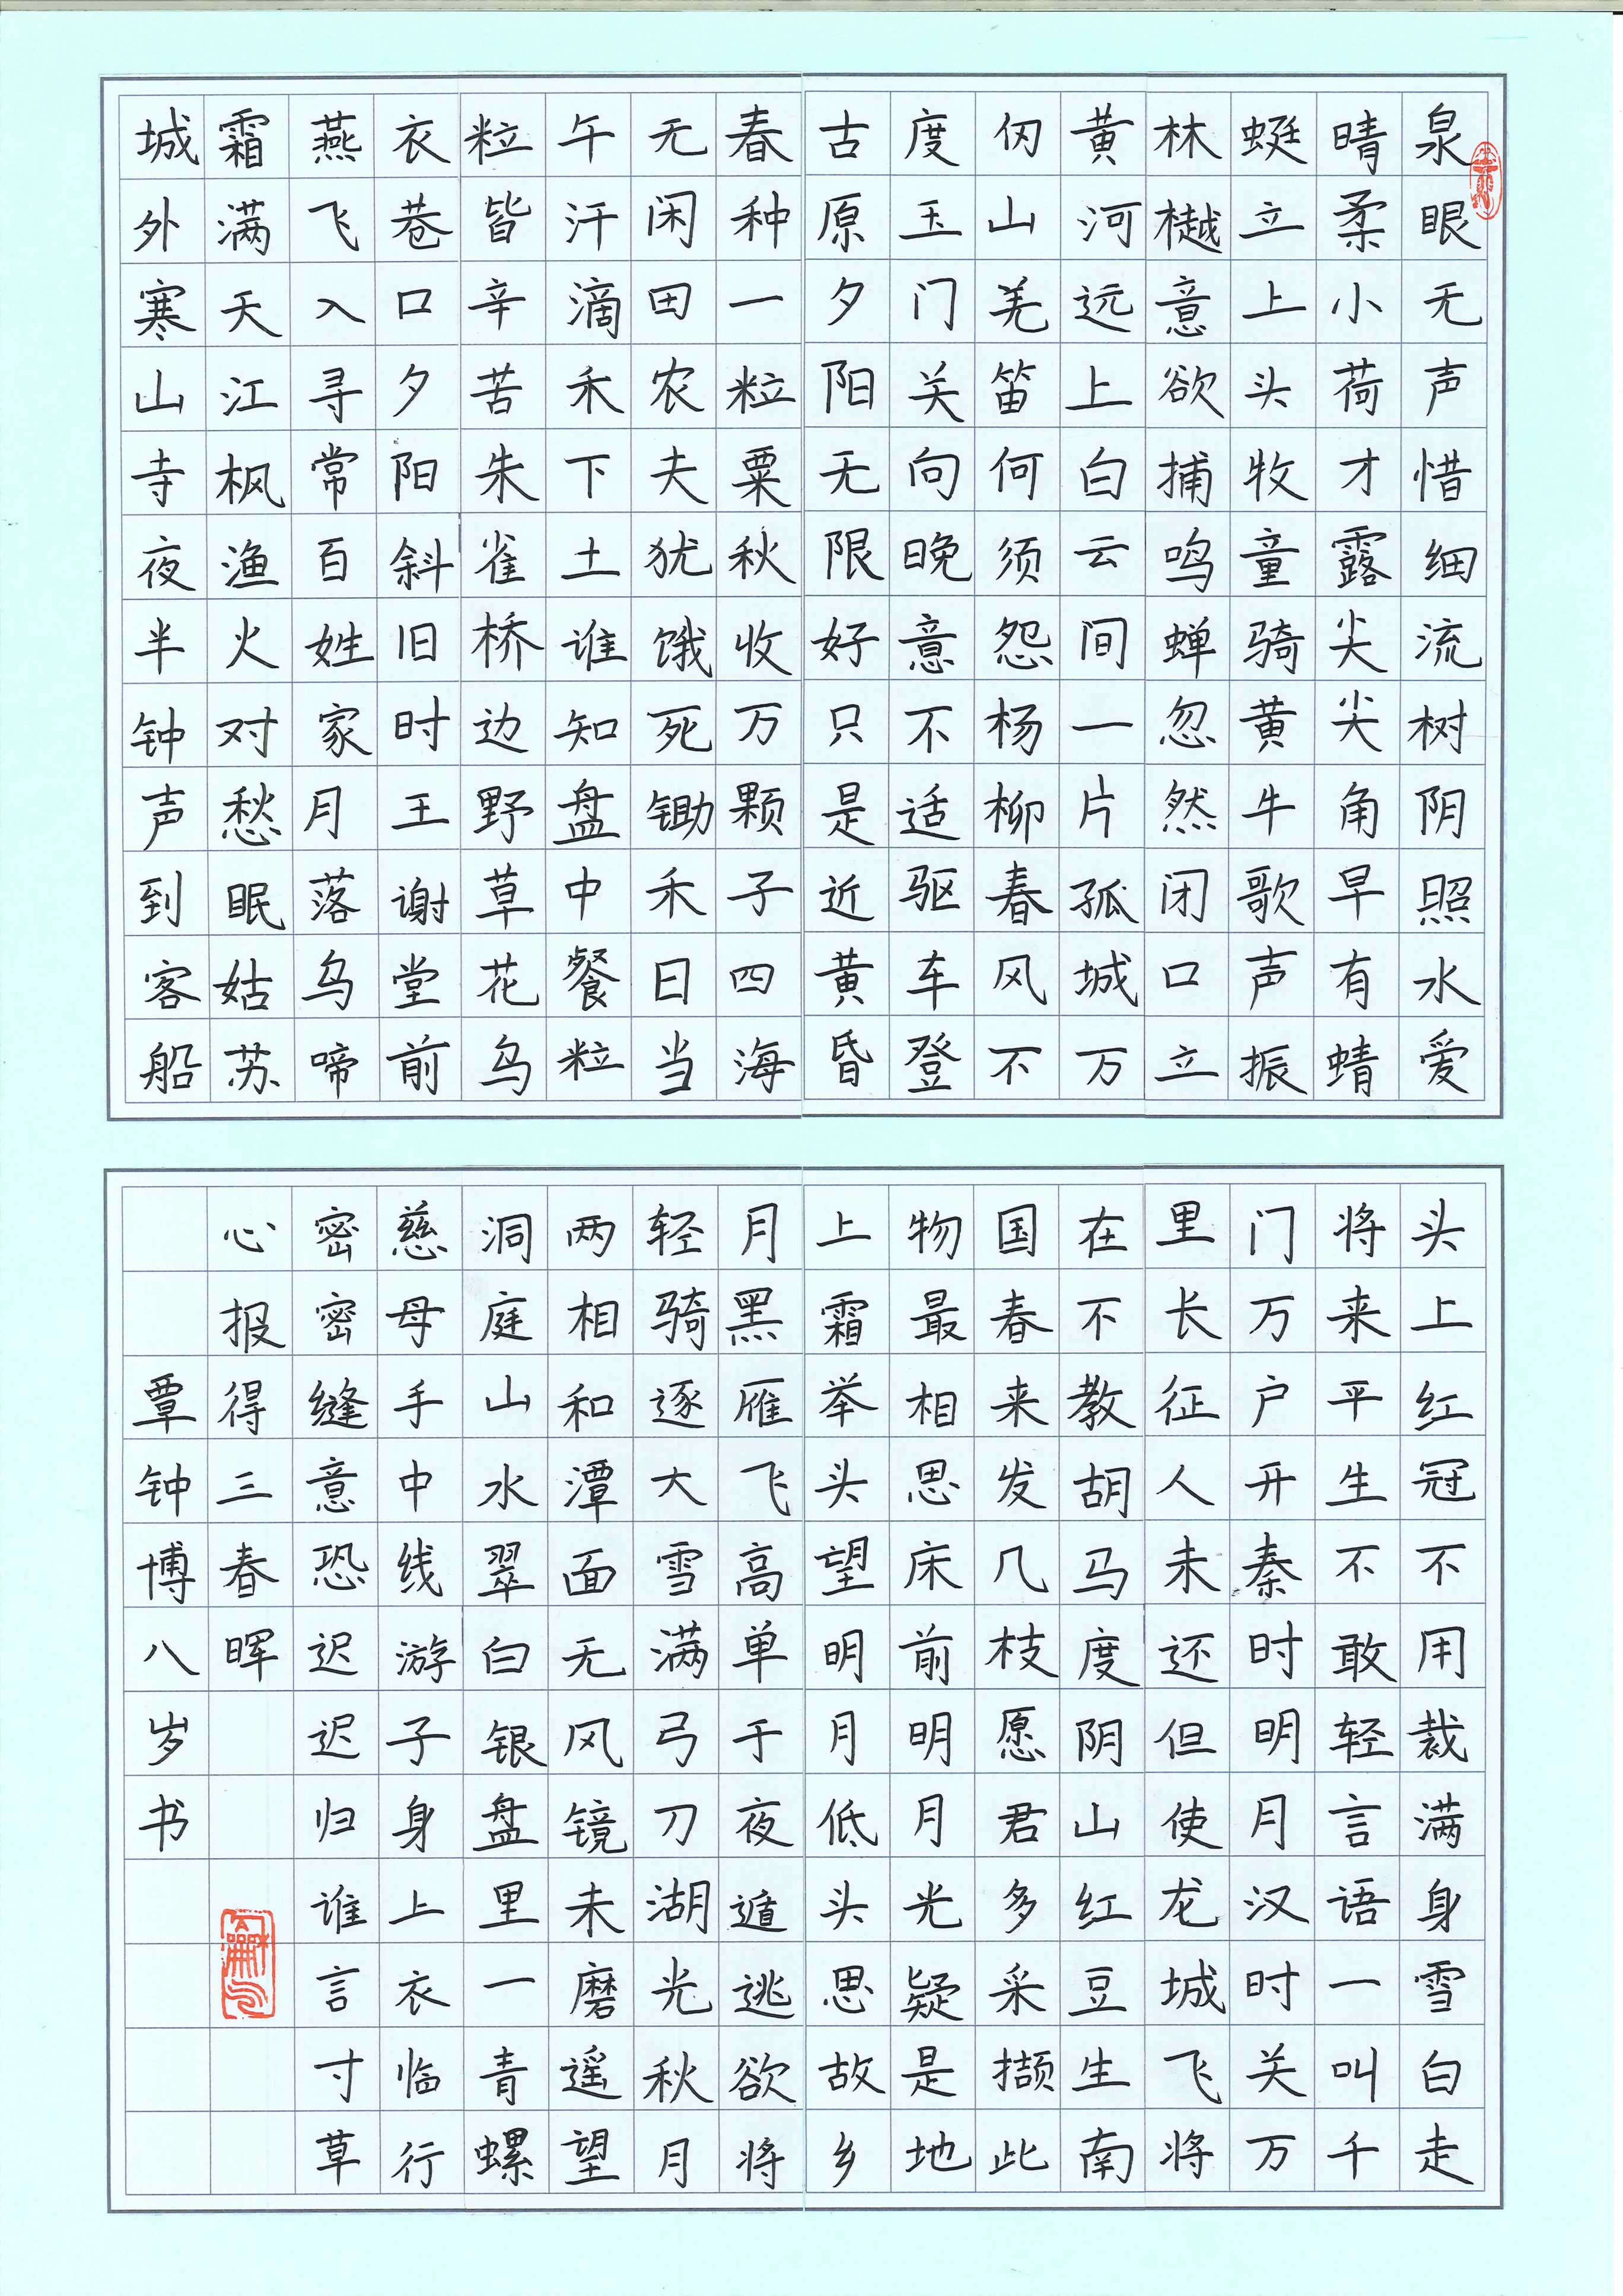 泉眼无声惜细流树阴照水爱
晴柔小荷才露尖尖角早有蜻
蜓立上头牧童骑黄牛歌声振
林樾意欲捕鸣蝉忽然闭口立
黄河远上白云间一片孤城万
仞山羌笛何须怨杨柳春风不
度玉门关向晚意不适驱车登
古原夕阳无限好只是近黄昏
春种一粒粟秋收万颗子四海
无闲田农夫犹饿死锄禾日当
午汗滴禾下土谁知盘中餐粒
粒皆辛苦朱雀桥边野草花乌
衣巷口夕阳斜旧时王谢堂前
燕飞入寻常百姓家月落乌啼
霜满天江枫渔火对愁眠姑苏
城外寒山寺夜半钟声到客船
头上红冠不用裁满身雪白走
将来平生不敢轻言语一叫千
门万户开秦时明月汉时关万
里长征人未还但使龙城飞将
在不教胡马度阴山红豆生南
国春来发几枝愿君多采撷此
物最相思床前明月光疑是地
上霜举头望明月低头思故乡
月黑雁飞高单于夜遁逃欲将
轻骑逐大雪满弓刀湖光秋月
两相和潭面无风镜未磨遥望
洞庭山水翠白银盘里一青螺
慈母手中线游子身上衣临行
密密缝意恐迟迟归谁言寸草
心报得三春晖
覃钟博八岁书